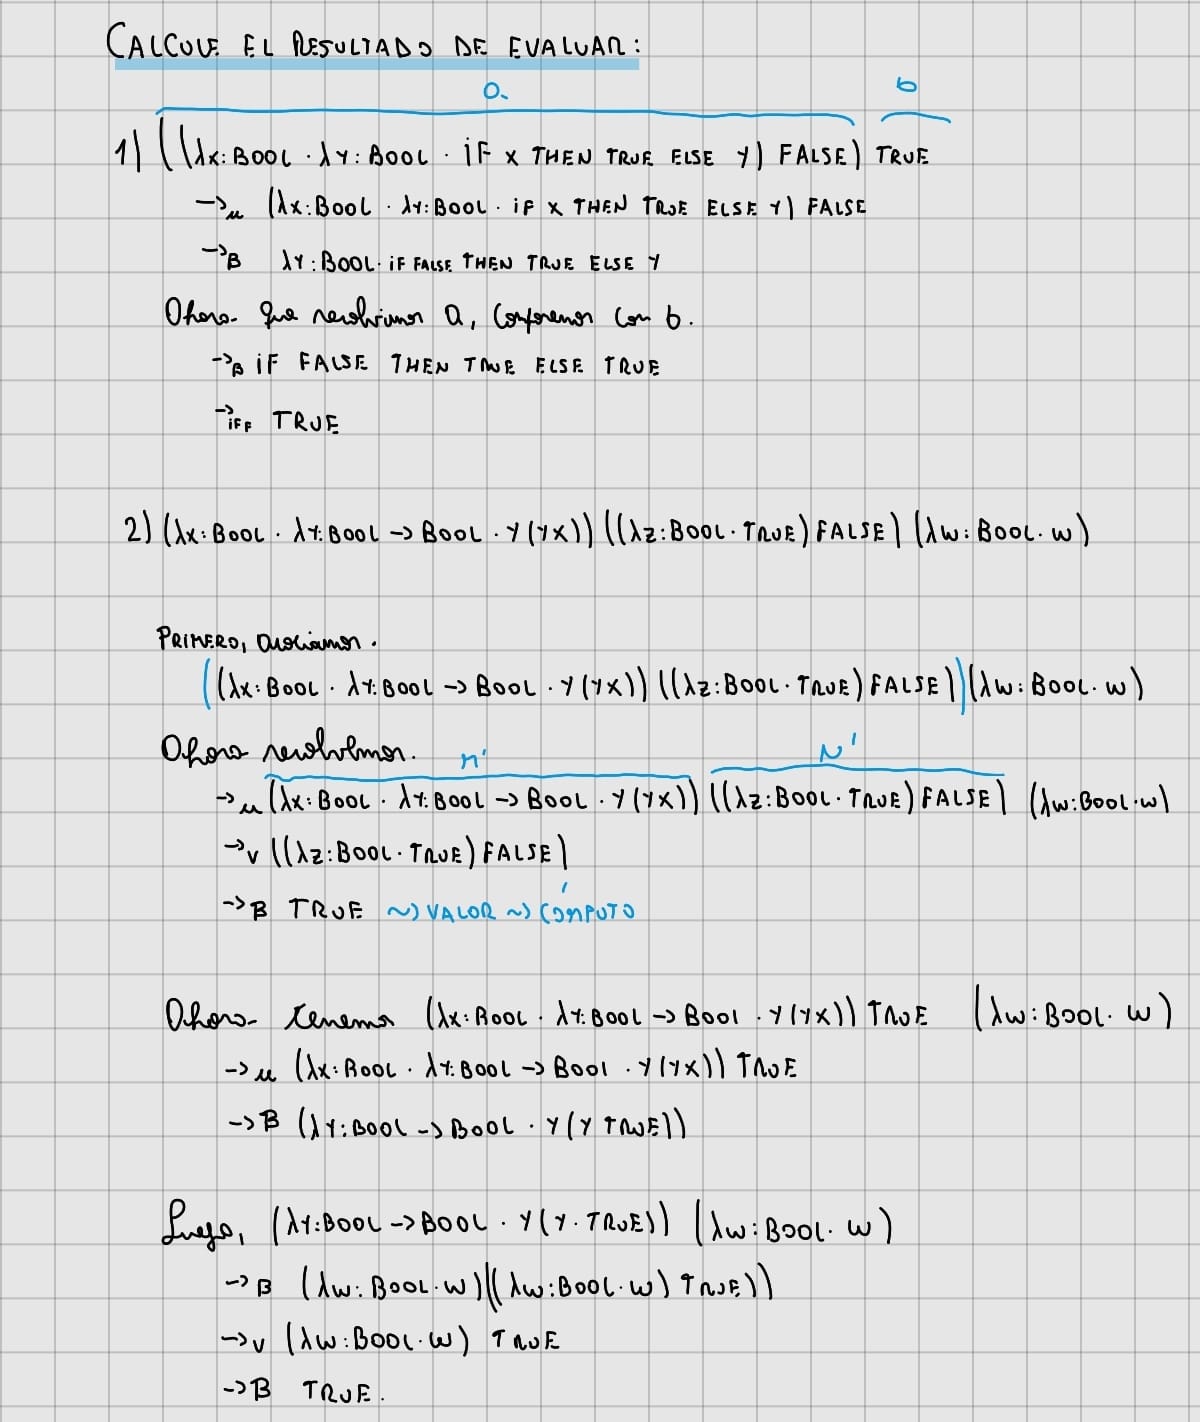 CALCULE EL RESULTADO DE EVALUAR:
a b
1) ((λx:BOOL . λY:BOOL . iF x THEN TRUE ELSE Y) FALSE) TRUE
→μ (λx:BOOL . λY:BOOL . iF x THEN TRUE ELSE Y) FALSE
→B λY:BOOL. iF FALSE THEN TRUE ELSE Y
Ahora que resolvimos a, Conforemos Con b.
→B iF FALSE THEN TRUE ELSE TRUE
→iFF TRUE
2) (λx:BOOL . λY:BOOL → BOOL . Y(Yx)) ((λz:BOOL.TRUE) FALSE) (λw:BOOL.w)
PRIMERO, asociamos.
((λx:BOOL . λY:BOOL → BOOL . Y(Yx)) ((λz:BOOL.TRUE) FALSE)) (λw:BOOL.w)
Ahora resolvemos. M' N'
→μ (λx:BOOL . λY:BOOL → BOOL . Y(Yx)) ((λz:BOOL.TRUE) FALSE) (λw:BOOL.w)
→v ((λz:BOOL.TRUE) FALSE)
→B TRUE ~) VALOR ~) CÓMPUTO
Ahora tenemos (λx:BOOL . λY:BOOL → BOOL . Y(Yx)) TRUE (λw:BOOL.w)
→μ (λx:BOOL . λY:BOOL → BOOL . Y(Yx)) TRUE
→B (λY:BOOL → BOOL . Y(Y TRUE))
Luego, (λY:BOOL → BOOL . Y(Y.TRUE)) (λw:BOOL.w)
→B (λw:BOOL.w)((λw:BOOL.w) TRUE))
→v (λw:BOOL.w) TRUE
→B TRUE.